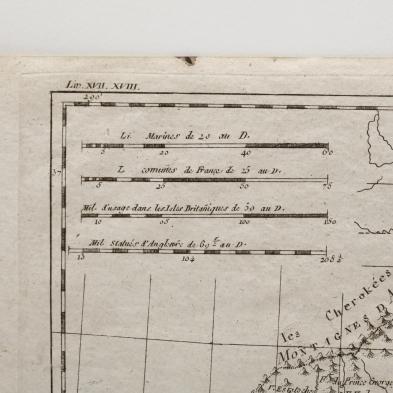 Liv. XVII. XVIII.
296
Li Marines de 20 au D.
5 20 40 60
37
L communes de France de 25 au D.
5 25 50 75
Mil d'usage dans les Isles Britañiques de 50 au D.
10 50 100 150
Mil Statués d'Anglet.re de 69 au D.
15 104 208 ½
les Cherokées
MONTAGNES D'A
Prince George